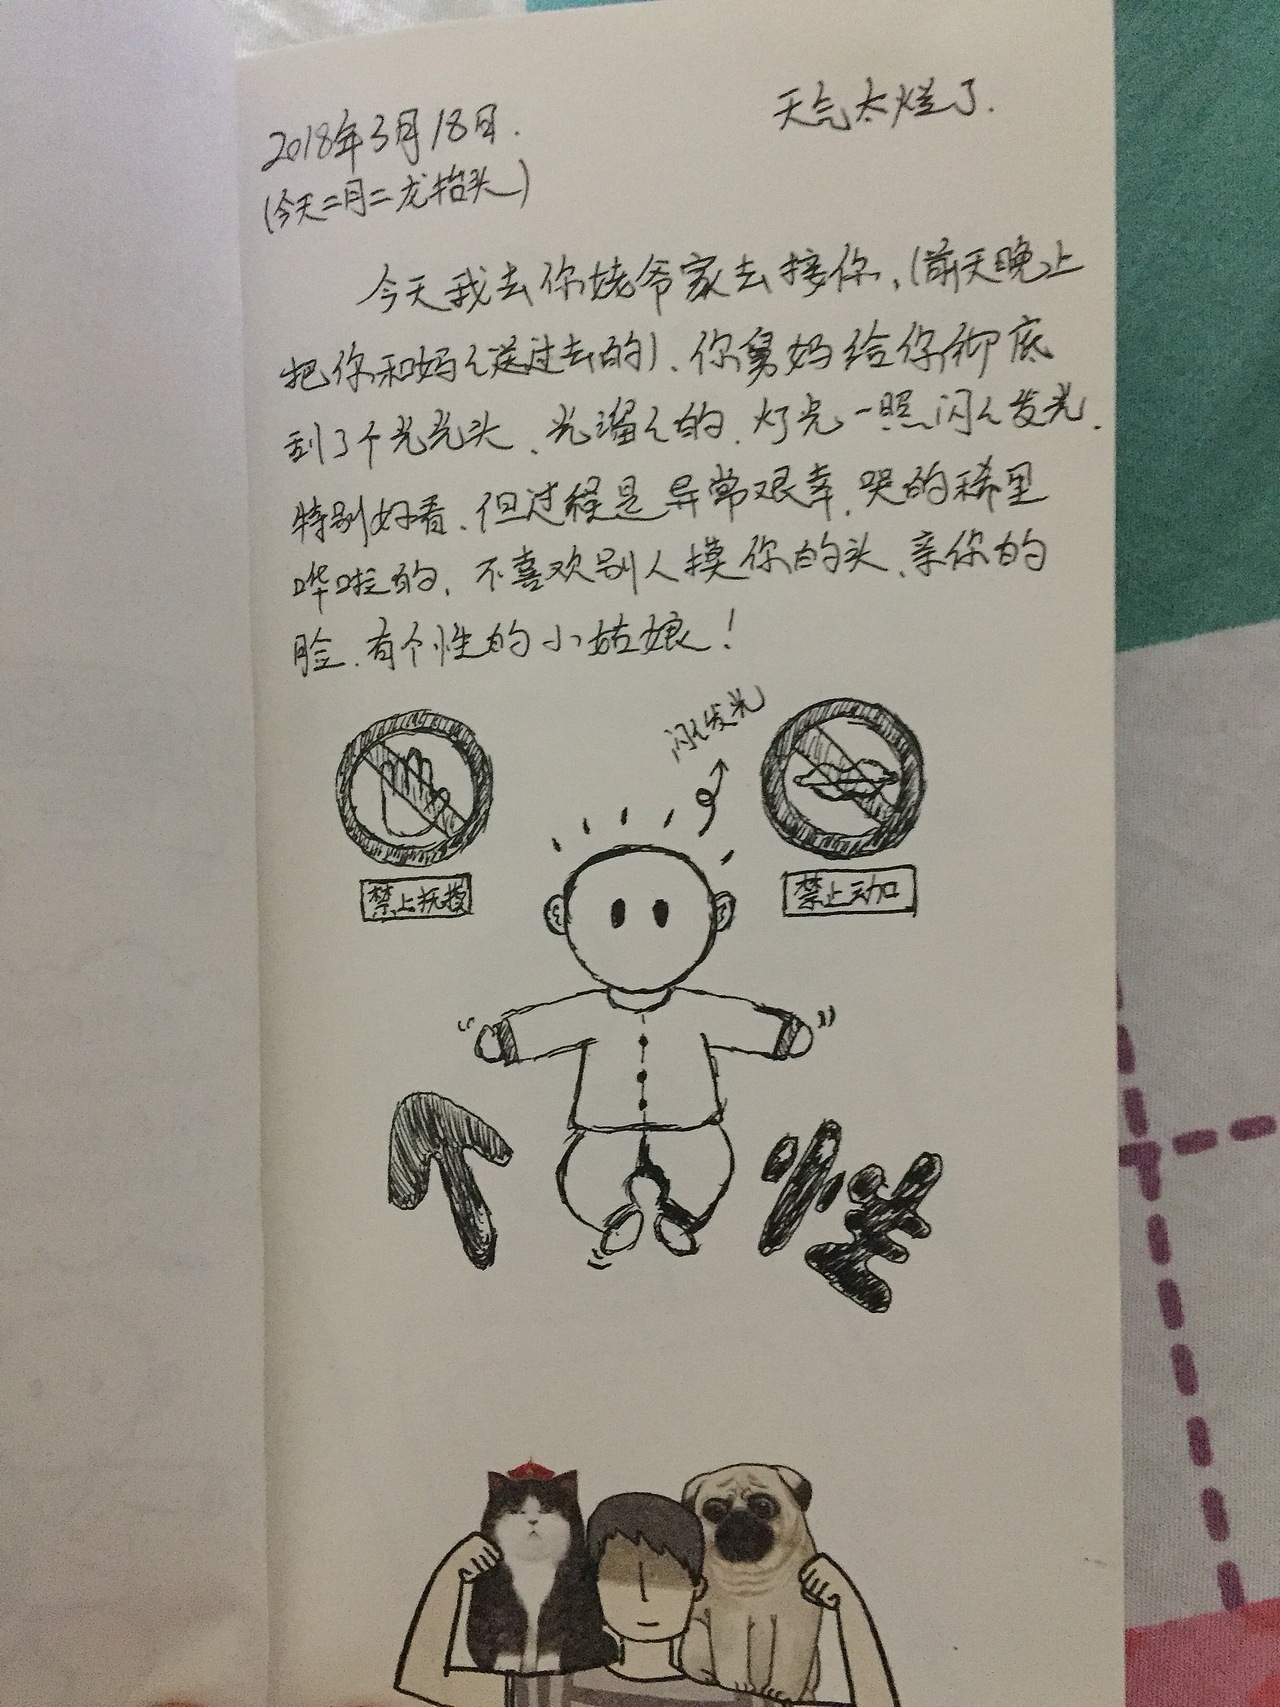 2018年3月18日.
天气太烂了.
(今天二月二龙抬头)
今天我去你姥爷家去接你,(前天晚上
把你和妈々送过去的)、你舅妈给你彻底
刮了个光光头、光溜々的、灯光一照闪々发光.
特别好看、但过程是异常艰辛,哭的稀里
哗啦的,不喜欢别人摸你的头、亲你的
脸、有个性的小姑娘!
闪々发光
禁止抚摸
禁止动口
个性